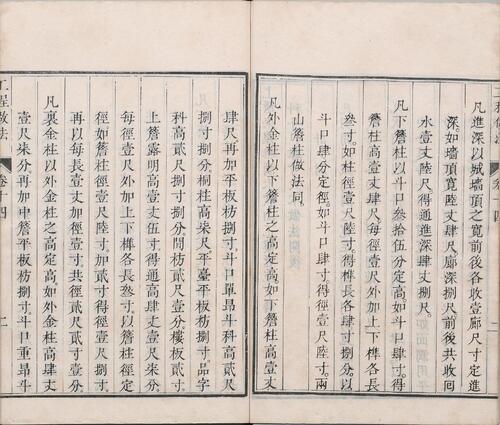 凡進深以城墻頂之寬前後各收壹廊尺寸定進
深。如墻頂寬陸丈肆尺廊深捌尺前後共收囘
水壹丈陸尺得通進深肆丈捌尺。
凡下簷柱以斗口叁拾伍分定高。如斗口肆寸。得
簷柱高壹丈肆尺。每徑壹尺外加上下榫各長
叁寸。如柱徑壹尺陸寸得榫長各肆寸捌分。以
斗口肆分定徑。如斗口肆寸。得徑壹尺陸寸。兩
山簷柱做法同。
凡外金柱以下簷柱之高定高。如下簷柱高壹丈
肆尺再加平板枋捌寸。斗口單昂斗科高貳尺
捌寸捌分桐柱高柒尺。平臺平板枋捌寸。品字
科高貳尺捌寸捌分。間枋貳尺壹分。樓板貳寸。
上簷露明高壹丈伍寸。得通高肆丈壹尺柒分。
每徑壹尺外加上下榫各長叁寸。以簷柱徑定
徑如簷柱徑壹尺陸寸。如貳寸得徑壹尺捌寸。
再以每長壹丈加徑壹寸共徑貳尺貳寸壹分
凡裏金柱以外金柱之高定高。如外金柱高肆丈
壹尺柒分。再加中簷平板枋捌寸。斗口重昂斗
工程做法
卷十四
二